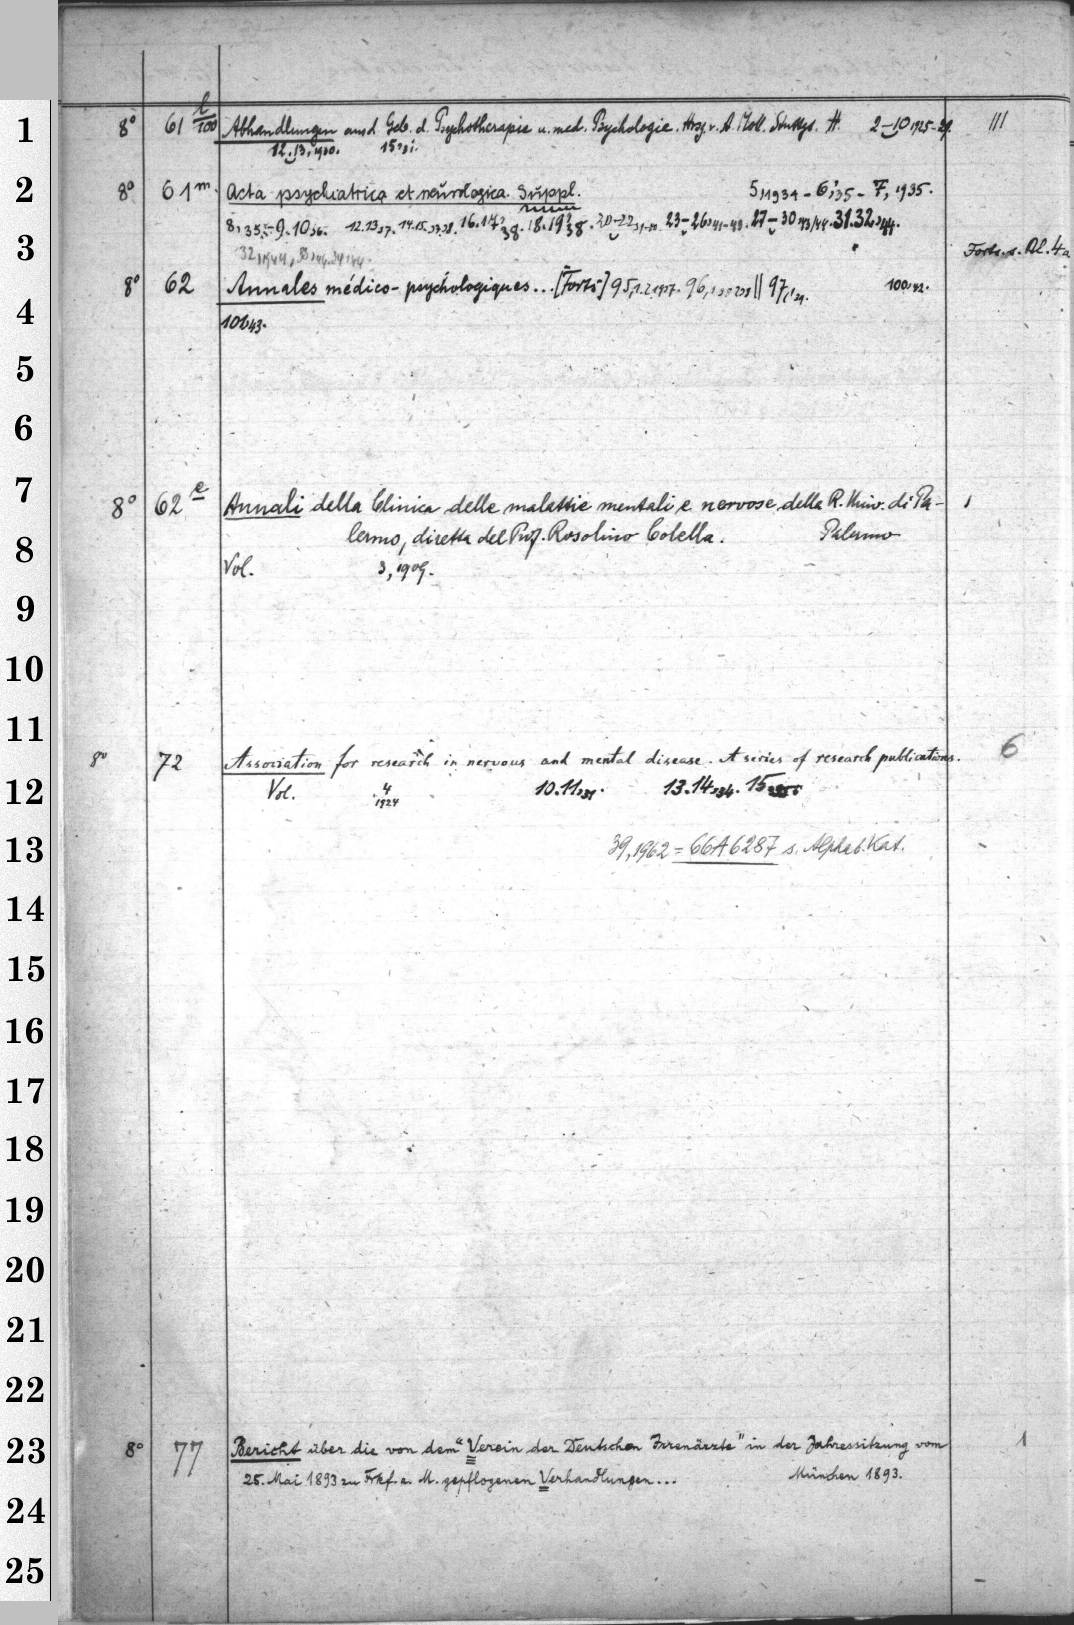 1 8° 61 l/100 Abhandlungen aus d. Geb. d. Psychotherapie u. med. Psychologie. Hrsg. v. A. Moll. Stuttg. H. 2-10, 1925-29. III
12.13, 1930. 15, 31.
2 8° 61 m. Acta psychiatrica et neurologica. Suppl. 5, 1934 - 6, 35 - 7, 1935.
8, 35. - 9. 10, 36. 12.13, 37. 14.15, 37, 38. 16.17, 38. 18.19, 38. 20-22, 23-26, 41-43. 27-30, 43/44. 31.32, 44.
3 Forts. s. Bl. 4a
8° 62 Annales médico-psychologiques... [Forts] 95, 1.2, 1937. 96, || 97, 100, 42.
4 101, 43.
5
6
7 8° 62 e Annali della Clinica delle malattie mentali e nervose della R. Univ. di Pa- 1
8 lermo, diretta del Prof. Rosolino Colella. Palermo
Vol. 3, 1909.
9
10
11 8° 72 Association for research in nervous and mental disease. A series of research publications. 6
12 Vol. 4 1924 10.11, 31. 13.14, 34. 15,
13 39, 1962 = 66A6287 s. Alphab. Kat.
14
15
16
17
18
19
20
21
22
23 8° 77 Bericht über die von dem "Verein der Deutschen Irrenärzte" in der Jahressitzung vom 1
25. Mai 1893 zu Frkf. a. M. gepflogenen Verhandlungen... München 1893.
24
25